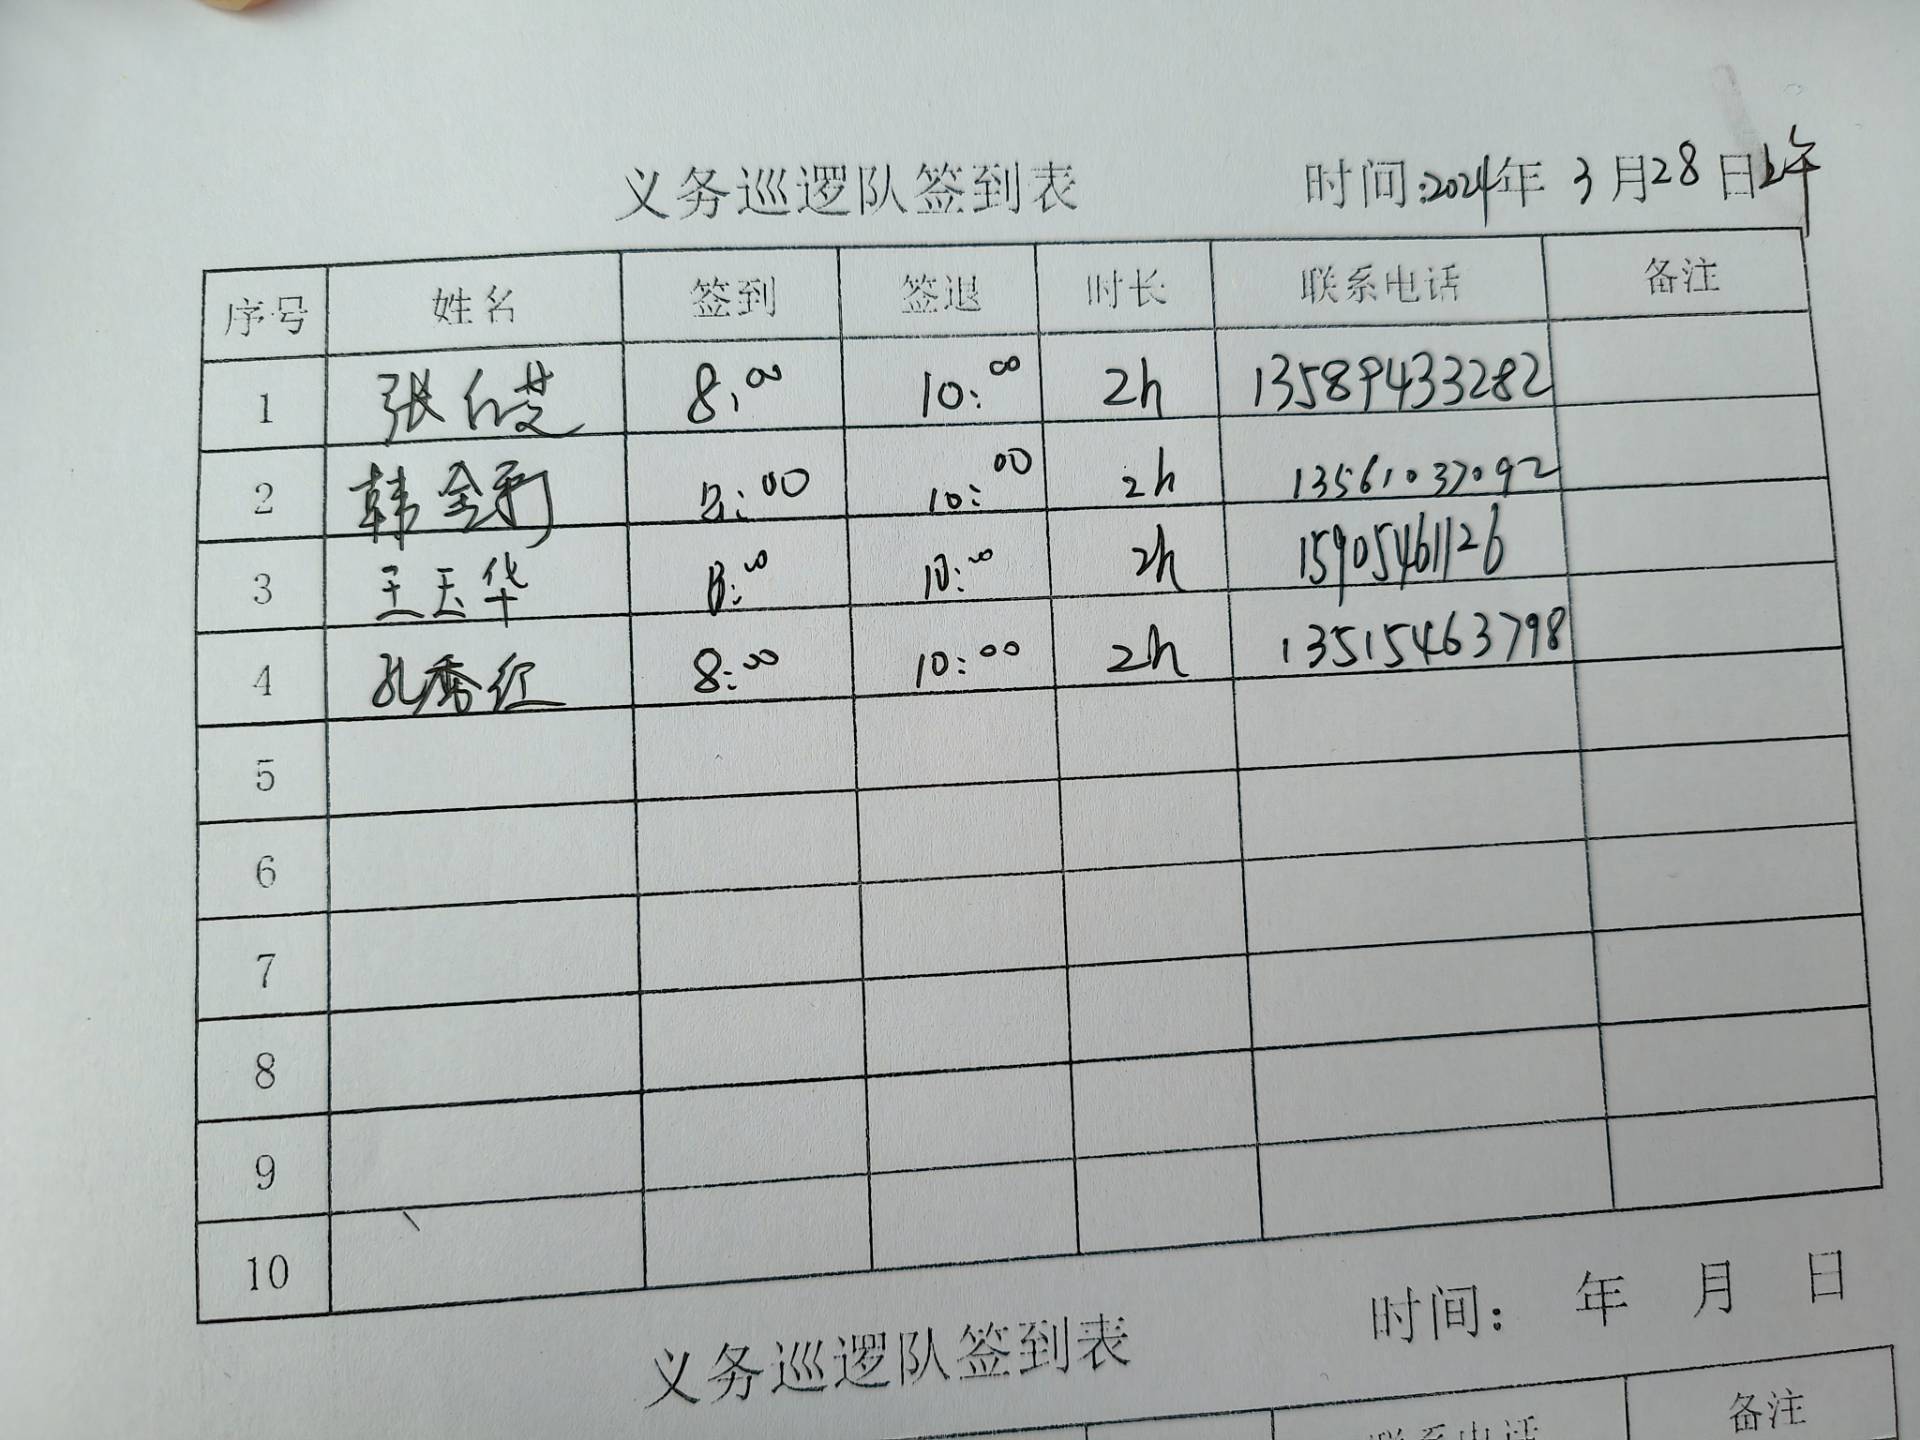 义务巡逻队签到表 时间:2024年 3月28日上午
序号 姓名 签到 签退 时长 联系电话 备注
1 张 8:00 10:00 2h 13589433282
2 韩 8:00 10:00 2h 13561037092
3 王玉华 8:00 10:00 2h 15905461126
4 孔秀红 8:00 10:00 2h 13515463798
5
6
7
8
9
10
义务巡逻队签到表 时间: 年 月 日
联系电话 备注